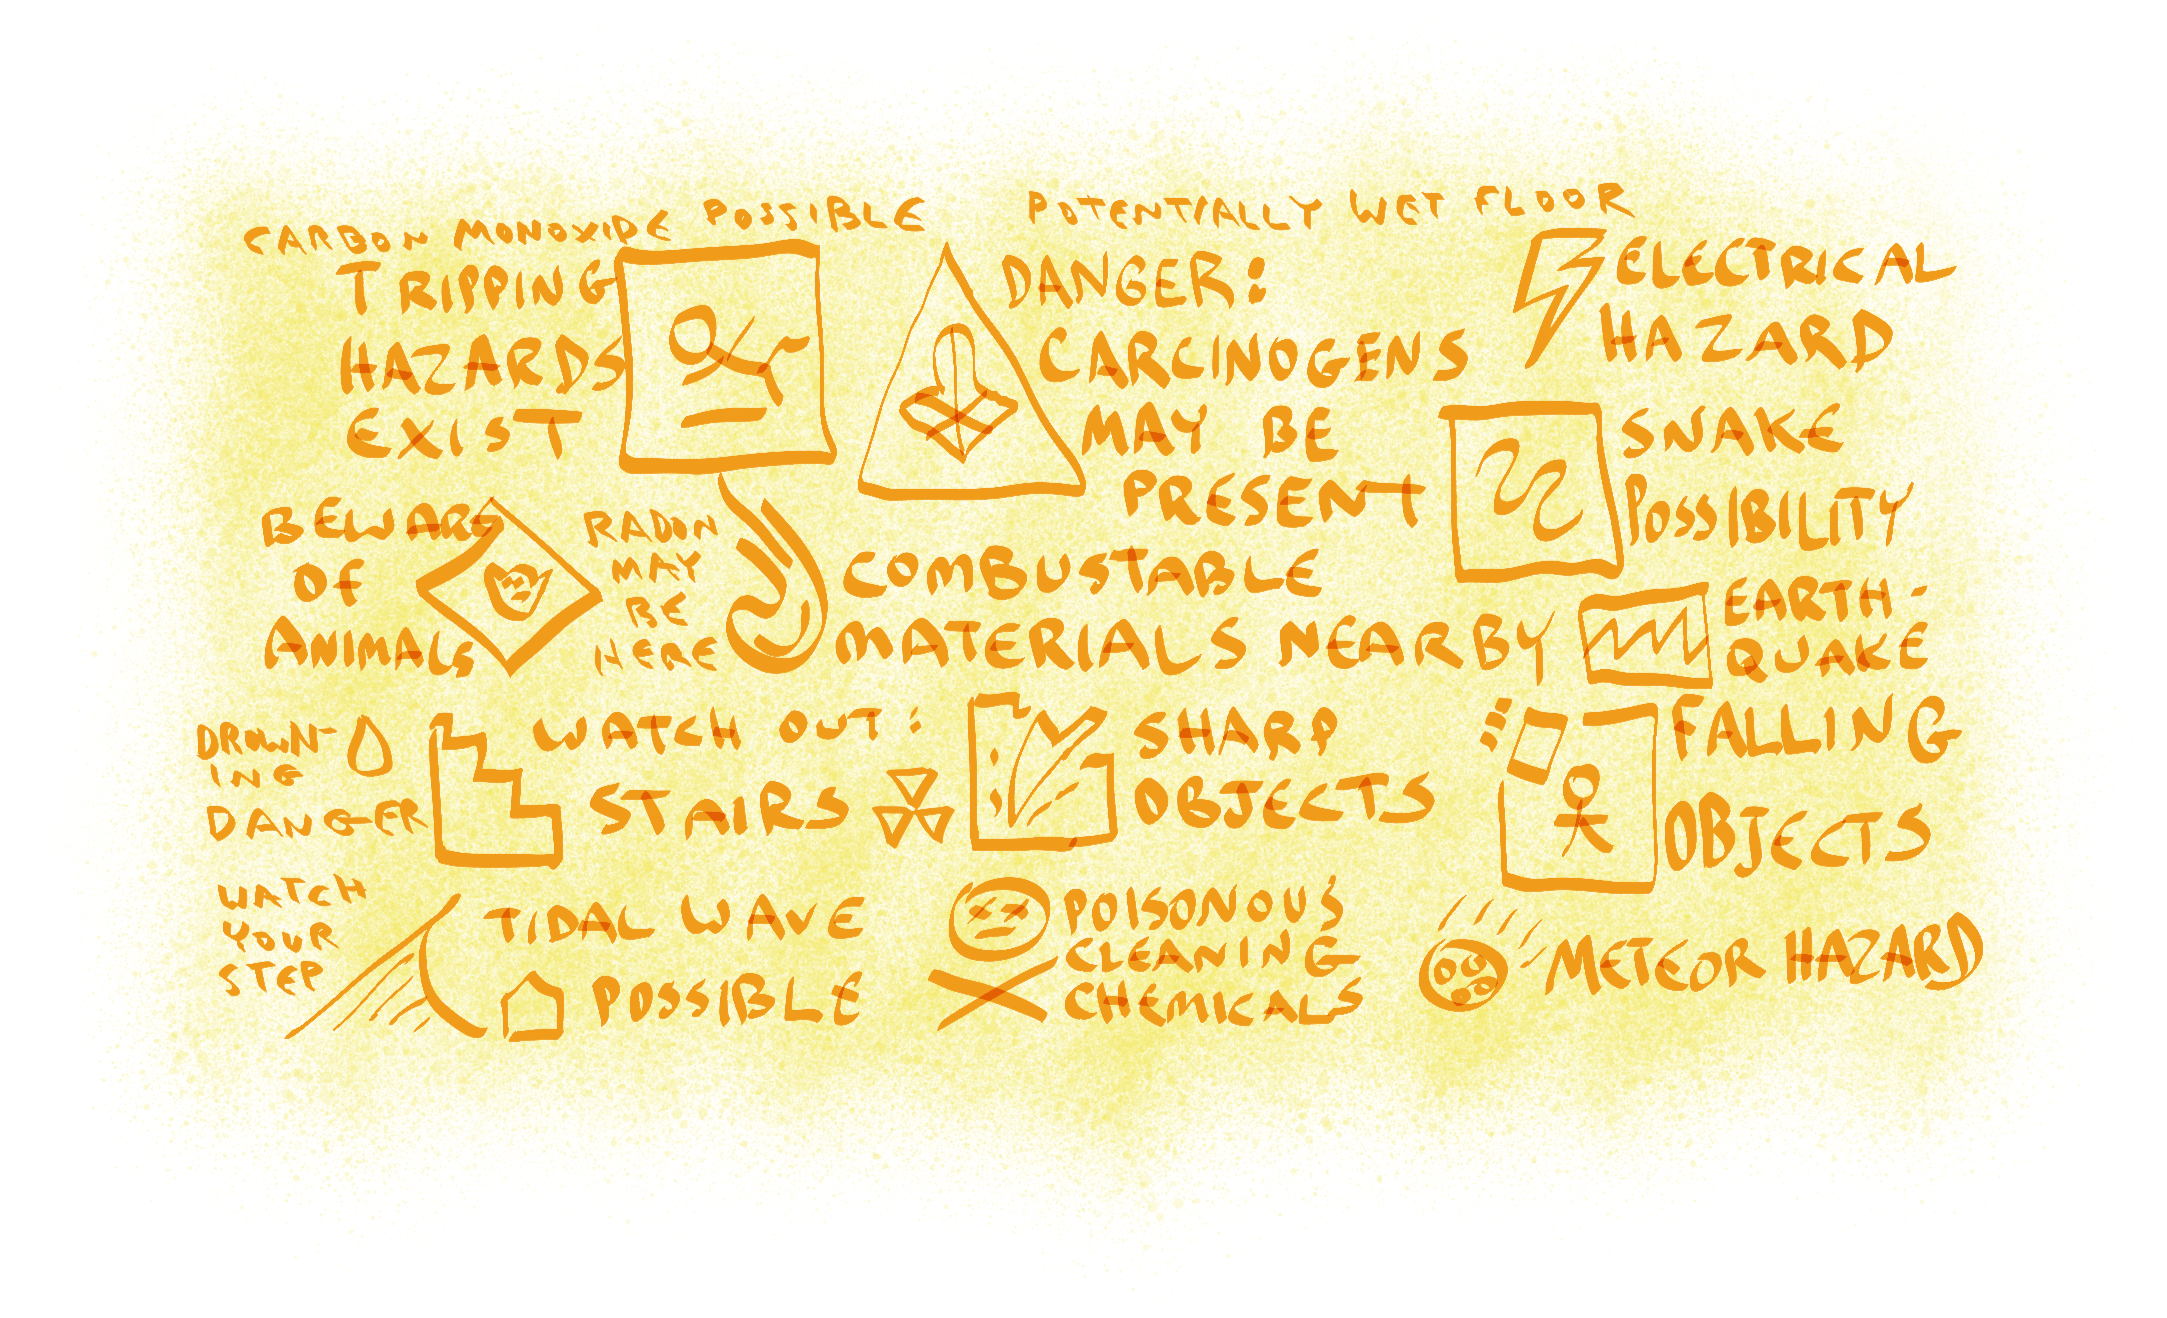 CARBON MONOXIDE POSSIBLE
POTENTIALLY WET FLOOR
TRIPPING
HAZARDS
EXIST
DANGER:
CARCINOGENS
MAY BE
PRESENT
ELECTRICAL
HAZARD
SNAKE
POSSIBILITY
BEWARE
OF
ANIMALS
RADON
MAY
BE
HERE
COMBUSTABLE
MATERIALS NEARBY
EARTH-
QUAKE
DROWN-
ING
DANGER
WATCH OUT:
STAIRS
SHARP
OBJECTS
FALLING
OBJECTS
WATCH
YOUR
STEP
TIDAL WAVE
POSSIBLE
POISONOUS
CLEANING
CHEMICALS
METEOR HAZARD